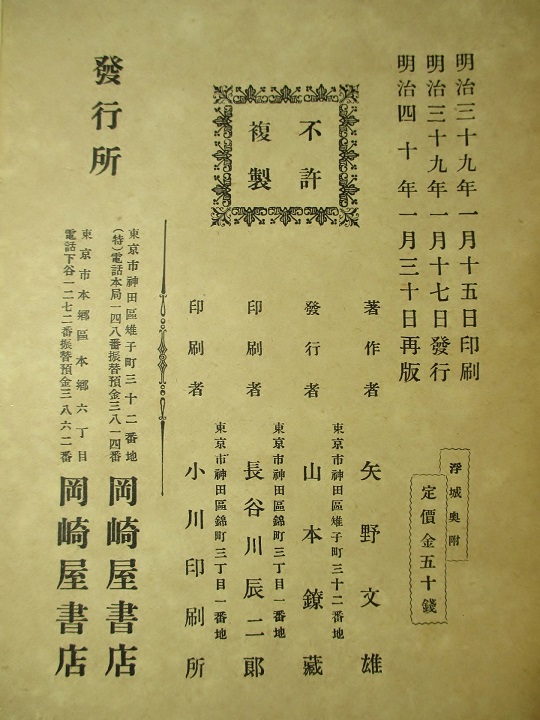 明治三十九年一月十五日印刷
明治三十九年一月十七日發行
明治四十年一月三十日再版
浮城奥附
定價金五十錢
不許
複製
著作者 矢野文雄
東京市神田區雉子町三十二番地
發行者 山本鐐藏
東京市神田區錦町三丁目一番地
印刷者 長谷川辰二郎
東京市神田區錦町三丁目一番地
印刷者 小川印刷所
發行所
東京市神田區雉子町三十二番地
(特)電話本局一四八番振替預金三八一四番
岡崎屋書店
東京市本郷區本郷六丁目
電話下谷一二七二番振替預金三八六二番
岡崎屋書店